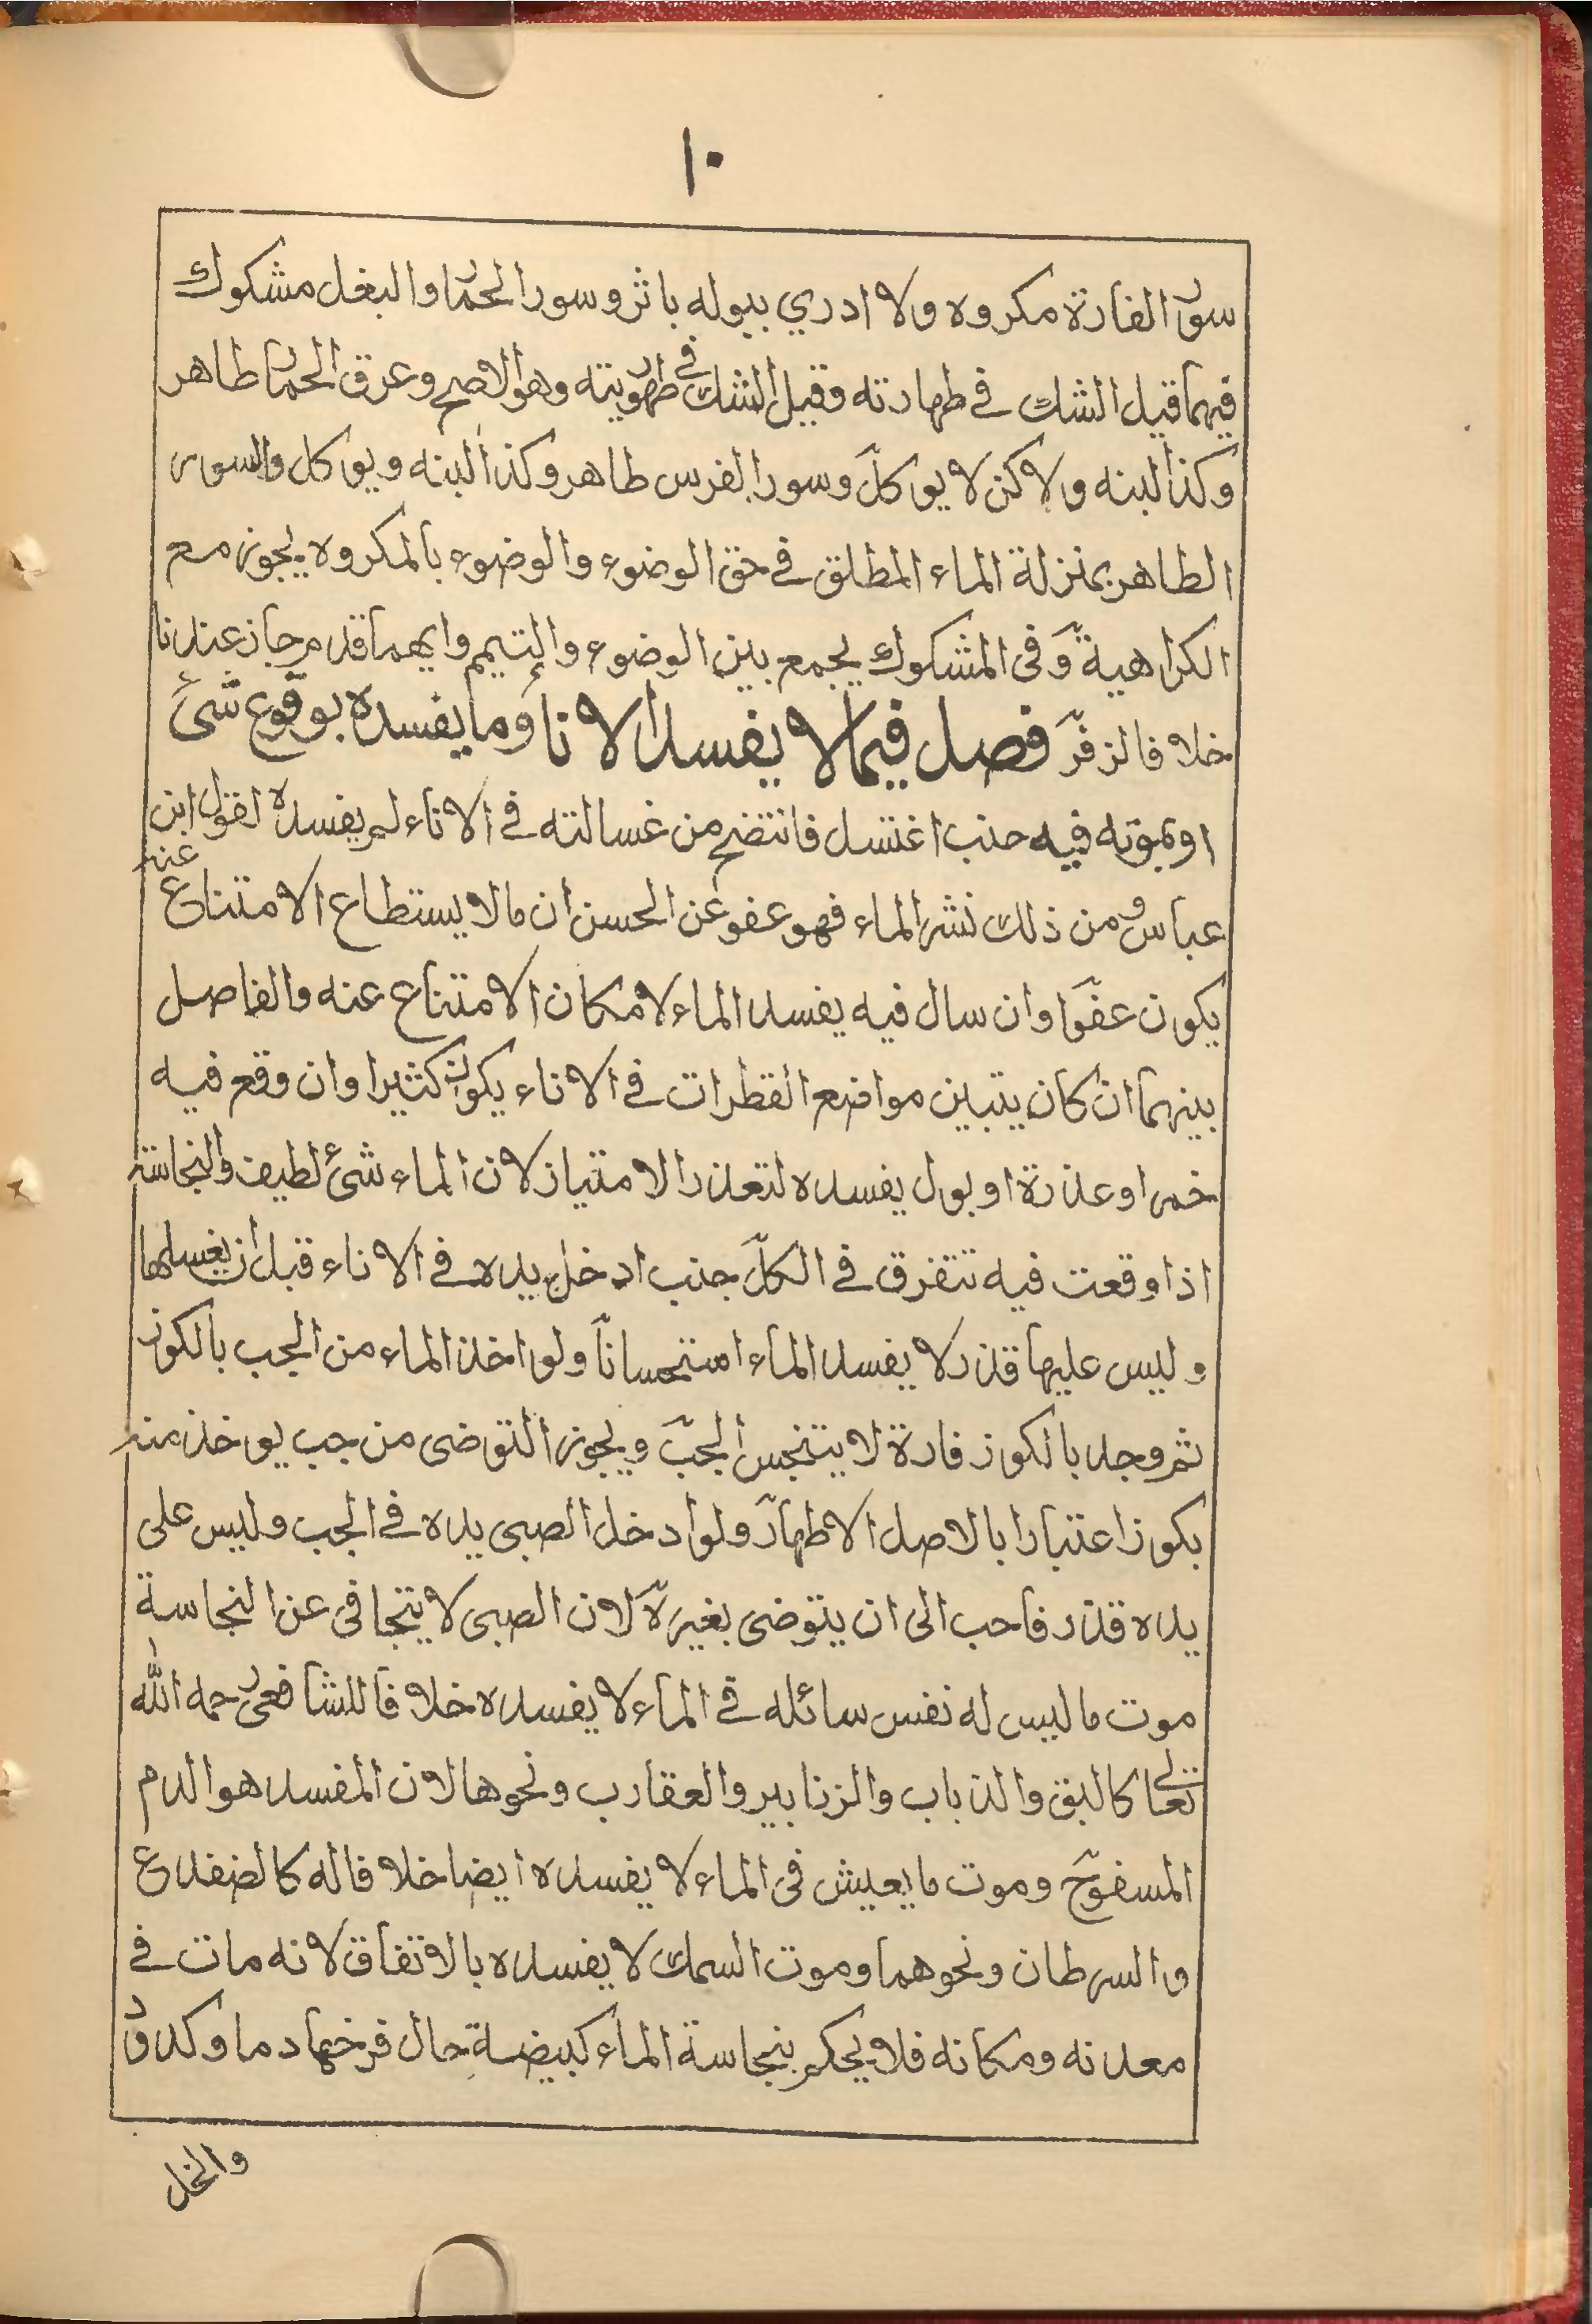 ١٠
سور الفارة مكروه ولا ادري ببوله باثر وسور الحمار والبغل مشكوك
فيهما قيل الشك في طهارته وقيل الشك في طهوريته وهو الاصح وعرق الحمار طاهر
وكذا لبنه ولاكن لا يوكل وسور الفرس طاهر وكذا لبنه ويوكل والسور
الطاهر بمنزلة الماء المطلق في حق الوضوء والوضوء بالمكروه يجوز مع
الكراهية وفى المشكوك يجمع بين الوضوء والتيمم وايهما قدم جاز عندنا
خلافا لزفر فصل فيما لا يفسد الاناء وما يفسده بوقوع شئ
او بموته فيه جنب اغتسل فانتضح من غسالته في الاناء لم يفسده لقول ابن
عباس ومن ذلك نشر الماء فهو عفو عن الحسن ان ما لا يستطاع الامتناع عنه
يكون عفوا وان سال فيه يفسد الماء لامكان الامتناع عنه والفاصل
بينهما ان كان يتبين مواضع القطرات في الاناء يكون كثيرا وان وقع فيه
خمر او عذرة او بول يفسده لتعذر الامتياز لان الماء شئ لطيف والنجاسة
اذا وقعت فيه تتفرق في الكل جنب ادخل يده في الاناء قبل ان يغسلها
وليس عليها قذر لا يفسد الماء استحسانا ولو اخذ الماء من الجب بالكوز
ثم وجد بالكوز فارة لا يتنجس الجب ويجوز التوضى من جب يوخذ منه
بكوز اعتبارا بالاصل الاطهار ولو ادخل الصبى يده في الجب وليس على
يده قذر فاحب الى ان يتوضى بغيره لان الصبى لا يتجافى عن النجاسة
موت ما ليس له نفس سائله في الماء لا يفسده خلافا للشافعى رحمه الله
تعالى كالبق والذباب والزنابير والعقارب ونحوها لان المفسد هو الدم
المسفوح وموت ما يعيش فى الماء لا يفسده ايضا خلافا له كالضفدع
والسرطان ونحوهما وموت السمك لا يفسده بالاتفاق لانه مات في
معدنه ومكانه فلا يحكم بنجاسة الماء كبيضة حال فرخها دما وكدود
والخل